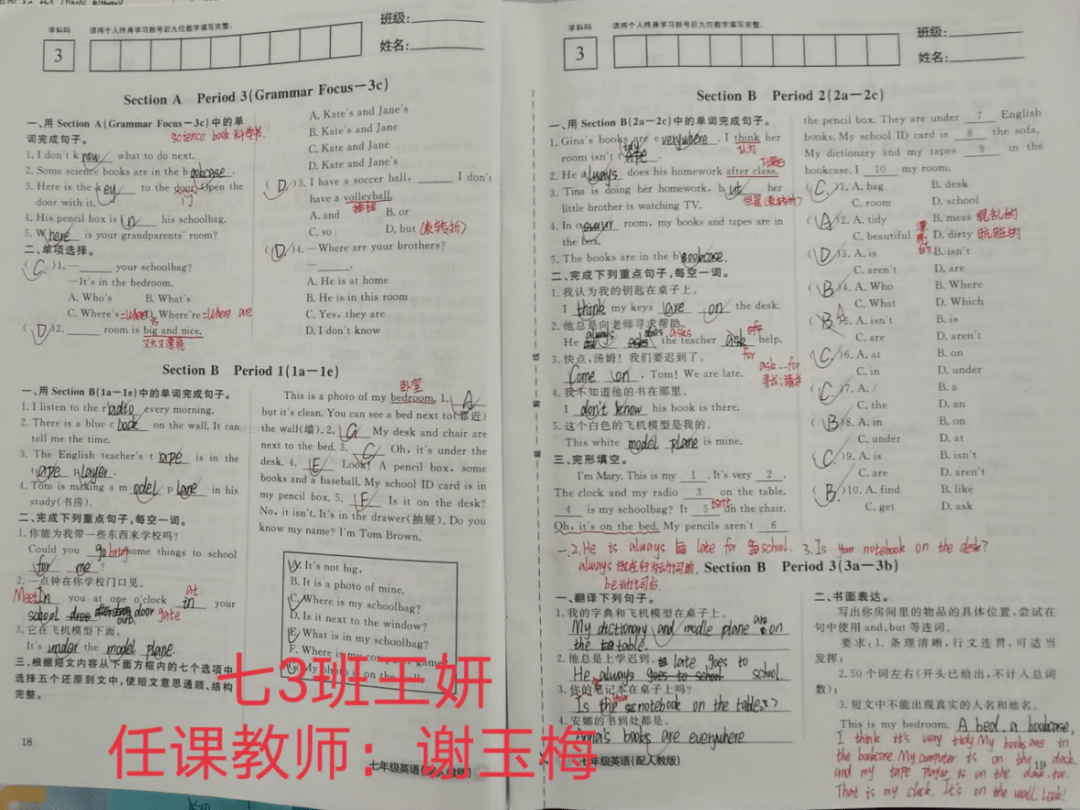 学科码
请将个人终身学习账号后九位数字填写完整。
班级:
3
姓名:
Section A Period 3(Grammar Focus—3c)
一、用 Section A(Grammar Focus—3c)中的单
词完成句子。
science book 科学书
1. I don't know what to do next.
2. Some science books are in the bookcase.
3. Here is the key to the door. Open the
door with it.
门
4. His pencil box is in his schoolbag.
5. Where is your grandparents' room?
二、单项选择。
( C )1. — your schoolbag?
—It's in the bedroom.
A. Who's B. What's
C. Where's D. Where're =where are
( D )2. room is big and nice.
A. Kate's and Jane's
B. Kate's and Jane
C. Kate and Jane
D. Kate and Jane's
( D )3. I have a soccer ball, I don't
have a volleyball.
排球
A. and B. or
C. so D. but (表转折)
( D )4. —Where are your brothers?
— .
A. He is at home
B. He is in this room
C. Yes, they are
D. I don't know
Section B Period 1(1a—1e)
一、用 Section B(1a—1e)中的单词完成句子。
1. I listen to the radio every morning.
2. There is a blue c on the wall. It can
tell me the time.
3. The English teacher's tape is in the
tape player.
4. Tom is making a model plane in his
study(书房).
二、完成下列重点句子,每空一词。
1. 你能为我带一些东西来学校吗?
Could you go bring some things to school
for me ?
2. 一点钟在你学校门口见。
Meet In you at one o'clock at in your
school door gate
3. 它在飞机模型下面。
It's under the model plane.
三、根据短文内容从下面方框内的七个选项中
选择五个还原到文中,使短文意思通顺、结构
完整。
18
卧室
This is a photo of my bedroom. 1. A
but it's clean. You can see a bed next to(靠近)
the wall(墙). 2. G My desk and chair are
next to the bed. 3. C Oh, it's under the
desk. 4. E Look! A pencil box, some
books and a baseball. My school ID card is in
my pencil box. 5. F Is it on the desk?
No, it isn't. It's in the drawer(抽屉). Do you
know my name? I'm Tom Brown.
A. It's not big,
B. It is a photo of mine.
C. Where is my schoolbag?
D. Is it next to the window?
E. What is in my schoolbag?
F. Where is my game
G. My photo is on the wall.
七3班王妍
任课教师：谢玉梅
七年级英语(配人教版)
学科码
请将个人终身学习账号后九位数字填写完整。
班级:
3
姓名:
Section B Period 2(2a—2c)
一、用 Section B(2a—2c)中的单词完成句子。
1. Gina's books are everywhere. I think her
认为
room isn't tidy.
2. He always does his homework after class.
下课后
3. Tina is doing her homework, but her
但是(表转折)
little brother is watching TV.
4. In our room, my books and tapes are in
the box.
5. The books are in the bookcase.
二、完成下列重点句子,每空一词。
1. 我认为我的钥匙在桌子上。
I think my keys are on the desk.
2. 他总是向老师寻求帮助。
He always asks the teacher ask for help.
3. 快点,汤姆! 我们要迟到了。
ask...for
Come on , Tom! We are late.
4. 我不知道他的书在那里。
I don't know his book is there.
5. 这个白色的飞机模型是我的。
This white model plane is mine.
三、完形填空。
I'm Mary. This is my 1 . It's very 2 .
The clock and my radio 3 on the table.
4 is my schoolbag? It 5 isn't on the chair.
Oh, it's on the bed. My pencils aren't 6
the pencil box. They are under 7 English
books. My school ID card is 8 the sofa.
My dictionary and my tapes 9 in the
bookcase. I 10 my room.
( C )1. A. bag B. desk
C. room D. school
( A )2. A. tidy B. mess 混乱的
C. beautiful 漂亮的 D. dirty 肮脏的
( D )3. A. is B. isn't
C. aren't D. are
( B )4. A. Who B. Where
C. What D. Which
( B A )5. A. isn't B. is
C. are D. aren't
( C )6. A. at B. on
C. in D. under
( C )7. A. / B. a
C. the D. an
( B )8. A. in B. on
C. under D. at
( C )9. A. is B. isn't
C. are D. aren't
( B )10. A. find B. like
C. get D. ask
一.2. He is always late for school. 3. Is your notebook on the desk?
always 放在行为动词前,
be动词后
Section B Period 3(3a—3b)
一、翻译下列句子。
1. 我的字典和飞机模型在桌子上。
My dictionary and modle plane are on
the table.
2. 他总是上学迟到。
He always late goes to school
3. 你的笔记本在桌子上吗?
Is the notebook on the tables?
4. 安娜的书到处都是。
Anna's books are everywhere
二、书面表达。
写出你房间里的物品的具体位置,尝试在
句中使用 and, but 等连词。
要求:1. 条理清晰,行文连贯,可适当
发挥;
2. 50 个词左右(开头已给出,不计入总词
数);
3. 短文中不能出现真实的人名和地名。
This is my bedroom. A bed, a bookcase,
I think it's very tidy. My books are in
the bookcase. My computer is on the desk
and my tape player is on the desk, too.
That is my clock. It's on the wall. Look!
七年级英语(配人教版)
19